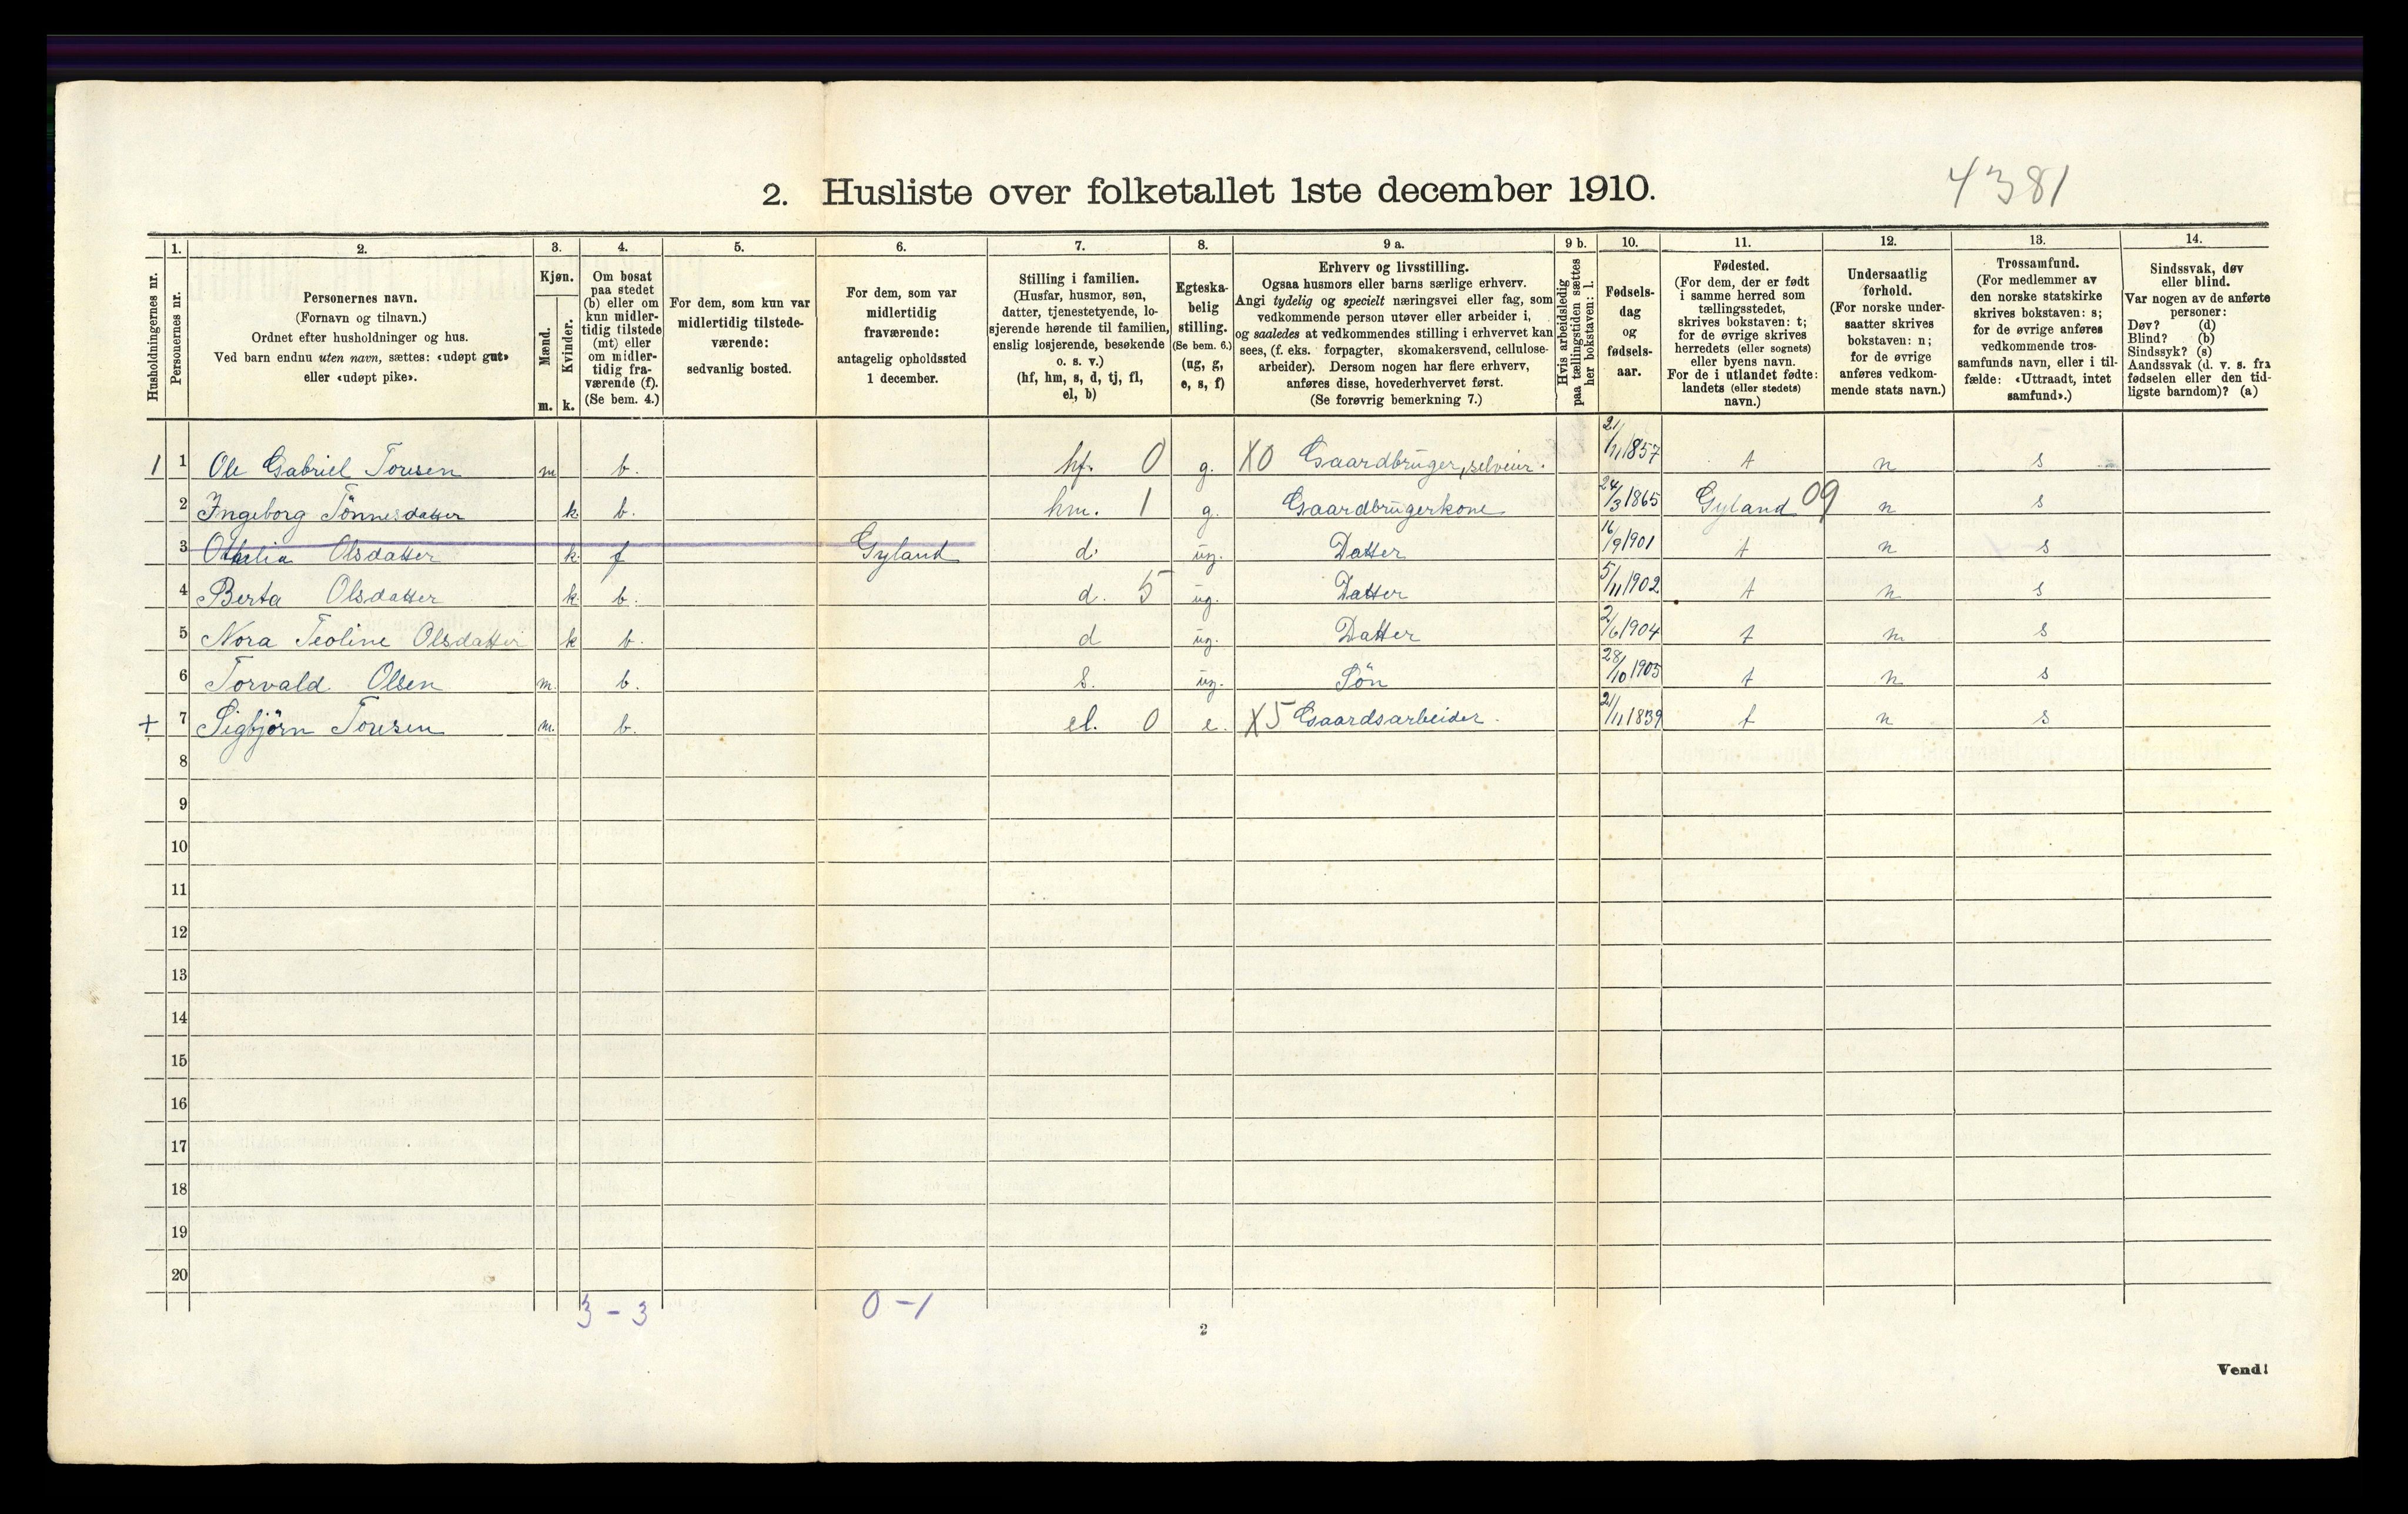 4381
2. Husliste over folketallet 1ste december 1910.
Husholdningernes nr.
1.
Personernes nr.
2.
Personernes navn.
(Fornavn og tilnavn.)
Ordnet efter husholdninger og hus.
Ved barn endnu uten navn, sættes: «udøpt gut»
eller «udøpt pike».
3.
Kjøn.
Mænd.
Kvinder.
m. k.
4.
Om bosat
paa stedet
(b) eller om
kun midler-
tidig tilstede
(mt) eller
om midler-
tidig fra-
værende (f).
(Se bem. 4.)
5.
For dem, som kun var
midlertidig tilstede-
værende:
sedvanlig bosted.
6.
For dem, som var
midlertidig
fraværende:
antagelig opholdssted
1 december.
7.
Stilling i familien.
(Husfar, husmor, søn,
datter, tjenestetyende, lo-
sjerende hørende til familien,
enslig losjerende, besøkende
o. s. v.)
(hf, hm, s, d, tj, fl,
el, b)
8.
Egteska-
belig
stilling.
(Se bem. 6.)
(ug, g,
e, s, f)
9 a.
Erhverv og livsstilling.
Ogsaa husmors eller barns særlige erhverv.
Angi tydelig og specielt næringsvei eller fag, som
vedkommende person utøver eller arbeider i,
og saaledes at vedkommendes stilling i erhvervet kan
sees, (f. eks. forpagter, skomakersvend, cellulose-
arbeider). Dersom nogen har flere erhverv,
anføres disse, hovederhvervet først.
(Se forøvrig bemerkning 7.)
9 b.
Hvis arbeidsledig
paa tællingstiden sættes
her bokstaven: l.
10.
Fødsels-
dag
og
fødsels-
aar.
11.
Fødested.
(For dem, der er født
i samme herred som
tællingsstedet,
skrives bokstaven: t;
for de øvrige skrives
herredets (eller sognets)
eller byens navn.
For de i utlandet fødte:
landets (eller stedets)
navn.)
12.
Undersaatlig
forhold.
(For norske under-
saatter skrives
bokstaven: n;
for de øvrige
anføres vedkom-
mende stats navn.)
13.
Trossamfund.
(For medlemmer av
den norske statskirke
skrives bokstaven: s;
for de øvrige anføres
vedkommende tros-
samfunds navn, eller i til-
fælde: «Uttraadt, intet
samfund».)
14.
Sindssvak, døv
eller blind.
Var nogen av de anførte
personer:
Døv? (d)
Blind? (b)
Sindssyk? (s)
Aandssvak (d. v. s. fra
fødselen eller den tid-
ligste barndom)? (a)
1 1 Ole Gabriel Toresen m b. hf. 0 g. X0 Gaardbruger, selveier. 21/11 1857 t n s
2 Ingeborg Tönnesdatter k. b. hm. 1 g. Gaardbrugerkone 24/3 1865 Gyland 09 n s
3 Othelia Olsdatter k. f Gyland d. ug. Datter 16/9 1901 t n s
4 Berta Olsdatter k. b. d. 5 ug. Datter 5/11 1902 t n s
5 Nora Teoline Olsdatter k b. d ug. Datter 2/6 1904 t n s
6 Torvald Olsen m. b. s. ug. Sön 28/10 1905 t n s
+ 7 Sigbjörn Toresen m. b. el. 0 e. X5 Gaardsarbeider. 21/11 1839 t n s
8
9
10
11
12
13
14
15
16
17
18
19
20
3 - 3 0 - 1
2
Vend!